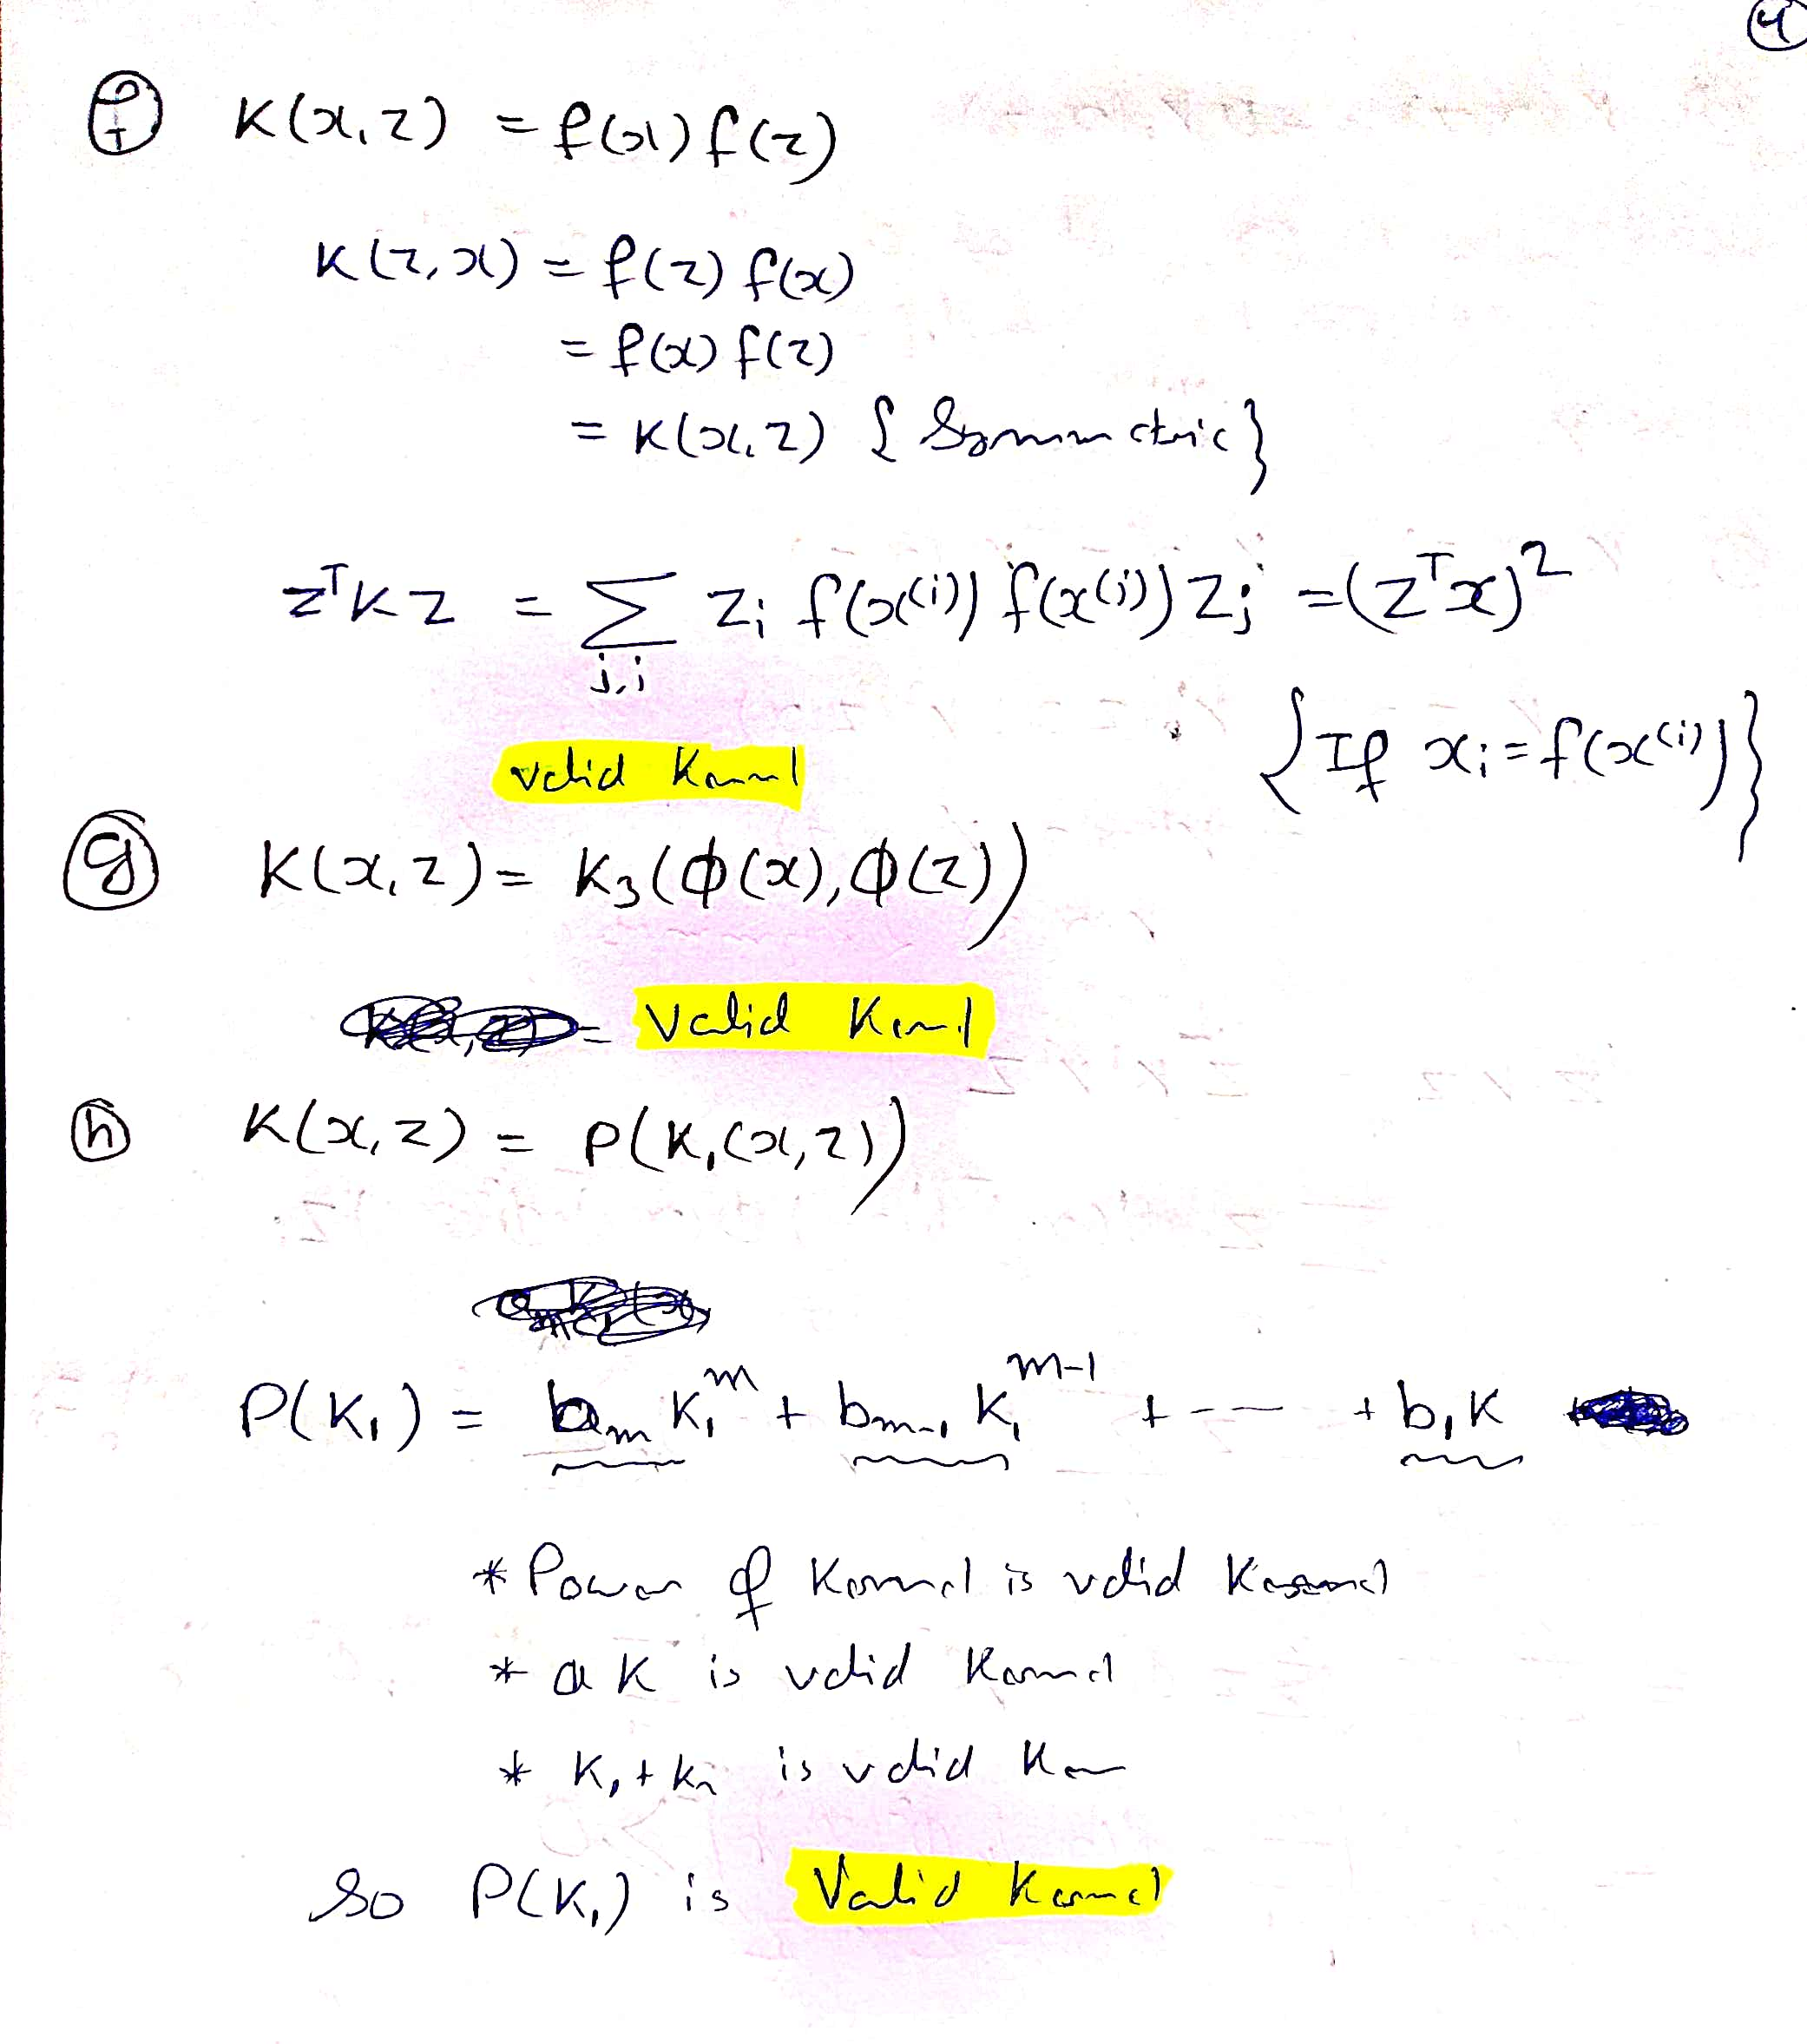 4
f K(x,z) = f(x) f(z)
K(z,x) = f(z) f(x)
= f(x) f(z)
= K(x,z) { Symmetric}
zᵀKz = Σ zᵢ f(x⁽ⁱ⁾) f(x⁽ʲ⁾) zⱼ = (zᵀx)²
j,i
{If xᵢ = f(x⁽ⁱ⁾)}
valid Kernel
g K(x,z) = K₃(ϕ(x),ϕ(z))
= Valid Kernel
h K(x,z) = P(K₁(x,z))
P(K₁) = bₘ K₁ᵐ + bₘ₋₁ K₁ᵐ⁻¹ + --- + b₁K
* Power of Kernel is valid Kernel
* a K is valid Kernel
* K₁ + K₂ is valid Ker
So P(K₁) is Valid Kernel